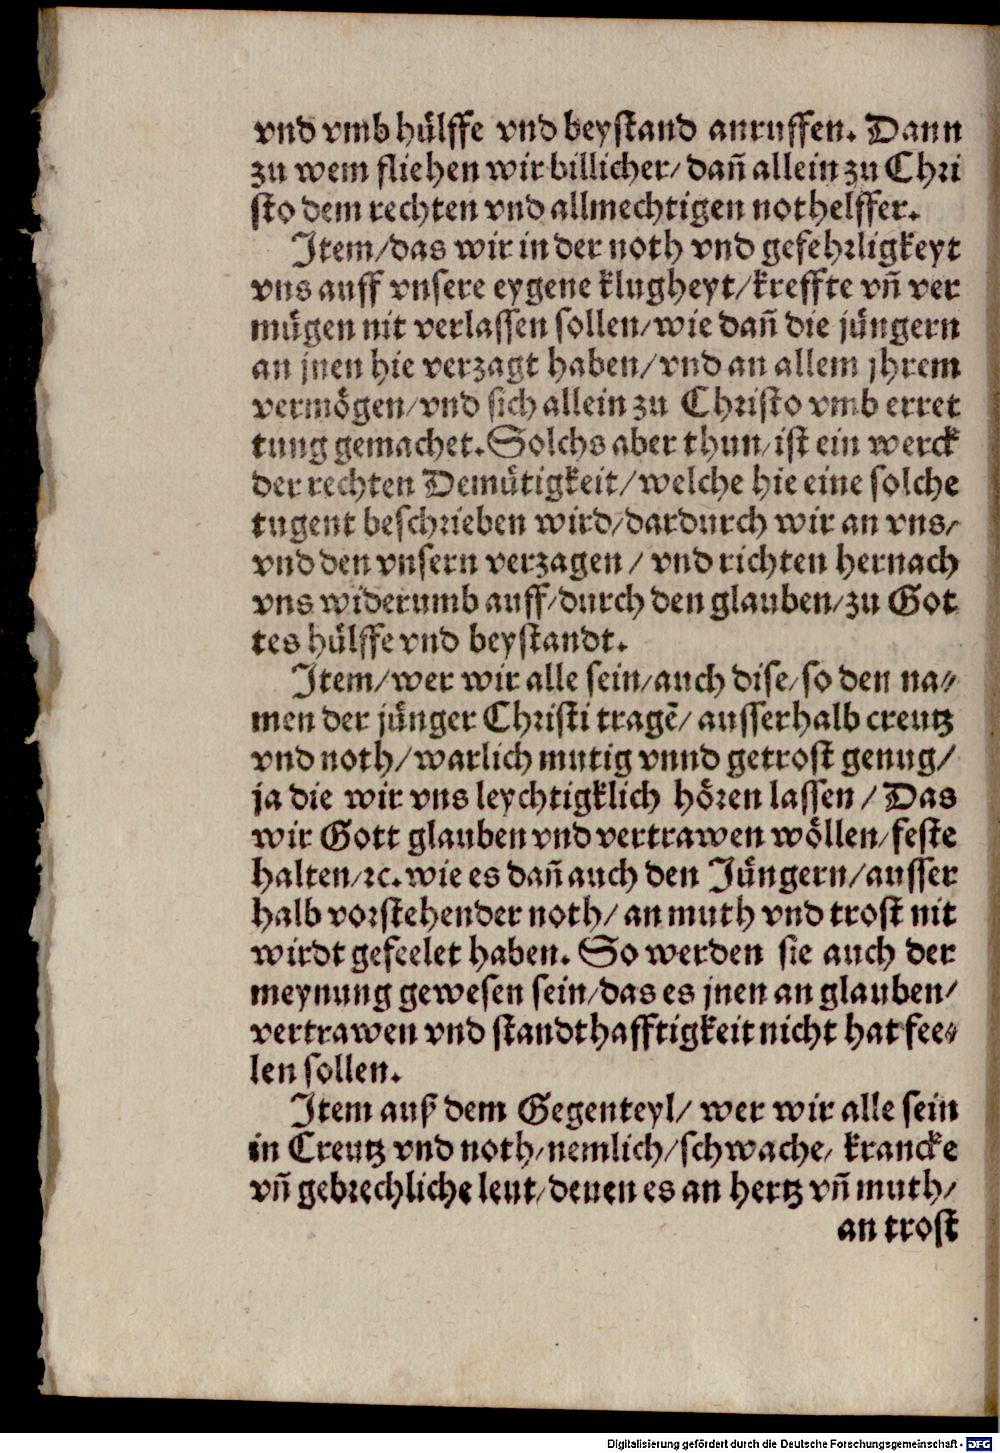 vnd vmb hülffe vnd beystand anruffen. Dann
zu wem fliehen wir billicher/ dañ allein zu Chri
sto dem rechten vnd allmechtigen nothelffer.
Item/das wir in der noth vnd gefehrligkeyt
vns auff vnsere eygene klugheyt/kreffte vñ ver
mügen nit verlassen sollen/wie dañ die jüngern
an jnen hie verzagt haben/vnd an allem jhrem
vermögen/vnd sich allein zu Christo vmb erret
tung gemachet. Solchs aber thun/ist ein werck
der rechten Demütigkeit/welche hie eine solche
tugent beschrieben wird/dardurch wir an vns/
vnd den vnsern verzagen / vnd richten hernach
vns widerumb auff/durch den glauben/zu Got
tes hülffe vnd beystandt.
Item/wer wir alle sein/auch dise/so den na⸗
men der jünger Christi tragẽ/ ausserhalb creutz
vnd noth/warlich mutig vnnd getrost genug/
ja die wir vns leychtigklich hören lassen / Das
wir Gott glauben vnd vertrawen wöllen/feste
halten/ꝛc. wie es dañ auch den Jüngern/ausser
halb vorstehender noth/ an muth vnd trost nit
wirdt gefeelet haben. So werden sie auch der
meynung gewesen sein/das es jnen an glauben/
vertrawen vnd standthafftigkeit nicht hat fee⸗
len sollen.
Item auß dem Gegenteyl/ wer wir alle sein
in Creutz vnd noth/nemlich/schwache/ krancke
vñ gebrechliche leut/denen es an hertz vñ muth/
an trost
Digitalisierung gefördert durch die Deutsche Forschungsgemeinschaft - DFG